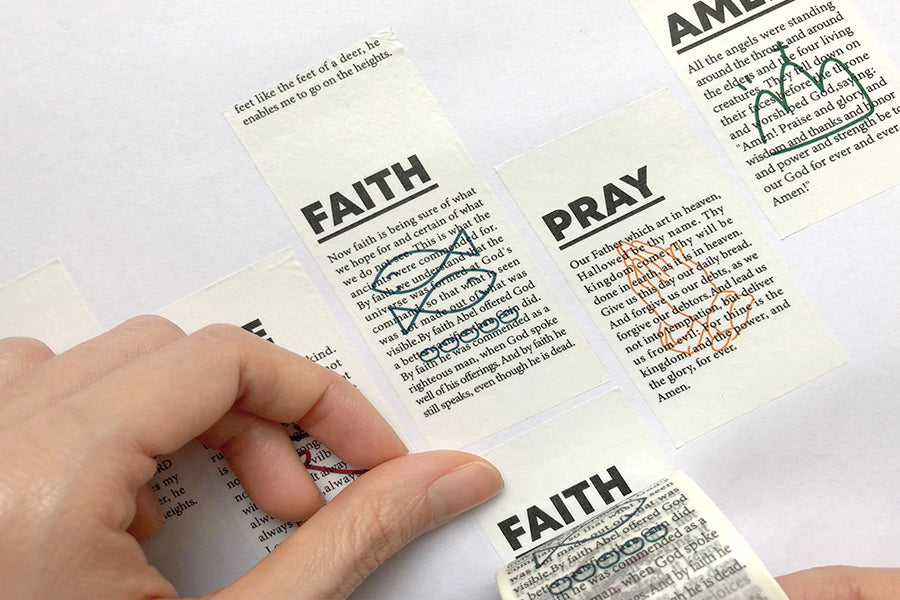 feet like the feet of a deer, he
enables me to go on the heights.
FAITH
Now faith is being sure of what
we hope for and certain of what
we do not see. This is what the
ancients were commended for.
By faith we understand that the
universe was formed at God's
command, so that what is seen
was not made out of what was
visible.By faith Abel offered God
a better sacrifice than Cain did.
By faith he was commended as a
righteous man, when God spoke
well of his offerings. And by faith he
still speaks, even though he is dead.
PRAY
Our Father, which art in heaven,
Hallowed be thy name. Thy
kingdom come. Thy will be
done in earth, as it is in heaven.
Give us this day our daily bread.
And forgive us our debts, as we
forgive our debtors. And lead us
not into temptation, but deliver
us from evil: for thine is the
kingdom, and the power, and
the glory, for ever.
Amen.
AMEN
All the angels were standing
around the throne and around
the elders and the four living
creatures. They fell down on
their faces before the throne
and worshiped God,saying:
"Amen! Praise and glory and
wisdom and thanks and honor
and power and strength be to
our God for ever and ever
Amen!"
E
kind.
not
always
always p
RD
es my
er, he
heights.
FAITH
was not made out of what was
visible.By faith Abel offered God
a better sacrifice than Cain did.
By faith he was commended as a
man, when God spoke
And by faith he
he is dead.